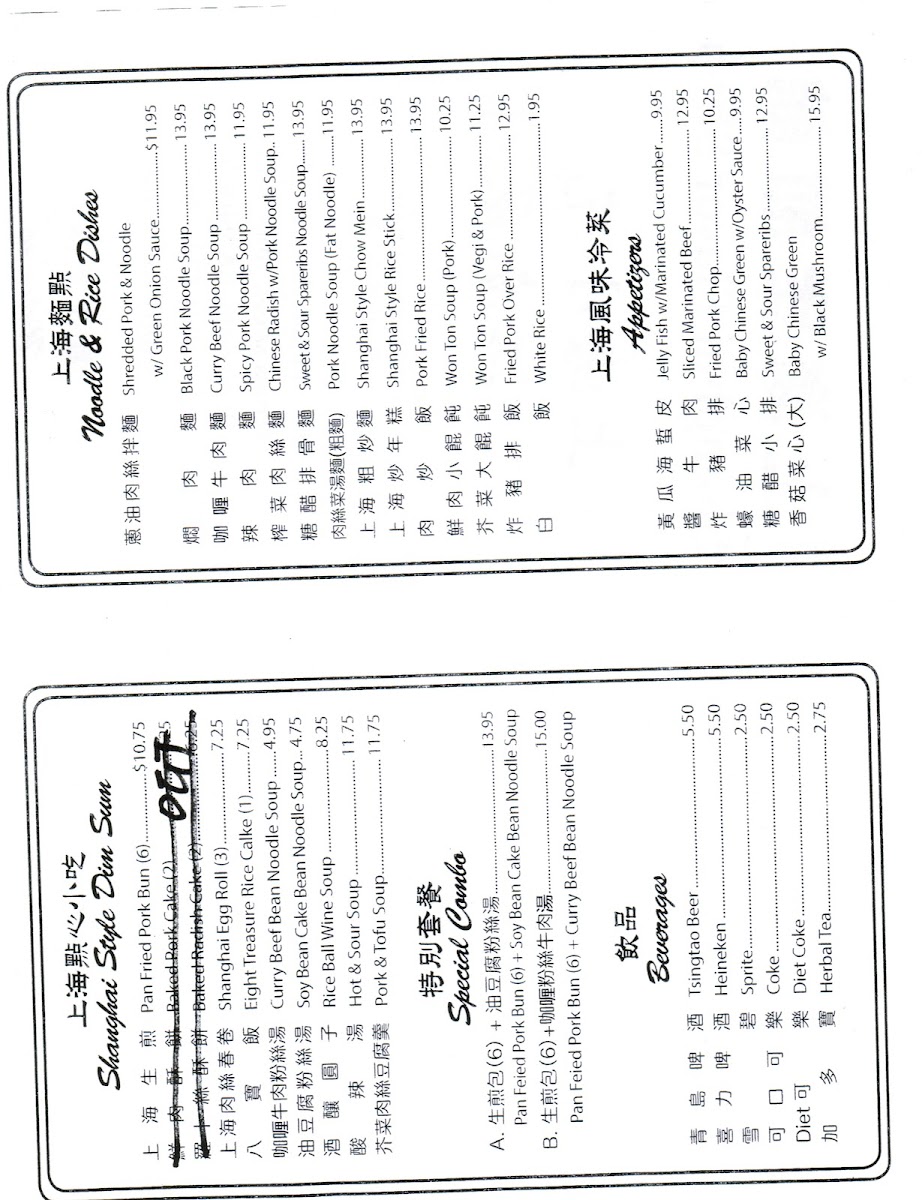 上海點心小吃
Shanghai Style Dim Sum
上海生煎 Pan Fried Pork Bun (6)..........$10.75
鮮肉酥餅 Baked Pork Cake (2)
蘿卜絲酥餅 Baked Radish Cake (2)..........6.25
上海肉絲春卷 Shanghai Egg Roll (3)..........7.25
八寶飯 Eight Treasure Rice Calke (1)..........7.25
咖喱牛肉粉絲湯 Curry Beef Bean Noodle Soup..........4.95
油豆腐粉絲湯 Soy Bean Cake Bean Noodle Soup..4.75
酒釀圓子 Rice Ball Wine Soup..........8.25
酸辣湯 Hot & Sour Soup..........11.75
芥菜肉絲豆腐羹 Pork & Tofu Soup..........11.75
特別套餐
Special Combo
A. 生煎包(6) + 油豆腐粉絲湯..........13.95
Pan Feied Pork Bun (6) + Soy Bean Cake Bean Noodle Soup
B. 生煎包(6)+咖喱粉絲牛肉湯..........15.00
Pan Feied Pork Bun (6) + Curry Beef Bean Noodle Soup
飲品
Beverages
青島啤酒 Tsingtao Beer..........5.50
喜力啤酒 Heineken..........5.50
雪碧 Sprite..........2.50
可口可樂 Coke..........2.50
Diet可樂 Diet Coke..........2.50
加多寶 Herbal Tea..........2.75
上海麵點
Noodle & Rice Dishes
蔥油肉絲拌麵 Shredded Pork & Noodle
w/ Green Onion Sauce..........$11.95
燜肉麵 Black Pork Noodle Soup..........13.95
咖喱牛肉麵 Curry Beef Noodle Soup..........13.95
辣肉麵 Spicy Pork Noodle Soup..........11.95
榨菜肉絲麵 Chinese Radish w/Pork Noodle Soup..11.95
糖醋排骨麵 Sweet & Sour Spareribs Noodle Soup......13.95
肉絲菜湯麵(粗麵) Pork Noodle Soup (Fat Noodle)........11.95
上海粗炒麵 Shanghai Style Chow Mein..........13.95
上海炒年糕 Shanghai Style Rice Stick..........13.95
肉炒飯 Pork Fried Rice..........13.95
鮮肉小餛飩 Won Ton Soup (Pork)..........10.25
芥菜大餛飩 Won Ton Soup (Vegi & Pork)..........11.25
炸豬排飯 Fried Pork Over Rice..........12.95
白飯 White Rice..........1.95
上海風味冷菜
Appetizers
黃瓜海蜇皮 Jelly Fish w/Marinated Cucumber.....9.95
醬牛肉 Sliced Marinated Beef..........12.95
炸豬排 Fried Pork Chop..........10.25
蠔油菜心 Baby Chinese Green w/Oyster Sauce....9.95
糖醋小排 Sweet & Sour Spareribs..........12.95
香菇菜心(大) Baby Chinese Green
w/ Black Mushroom..........15.95